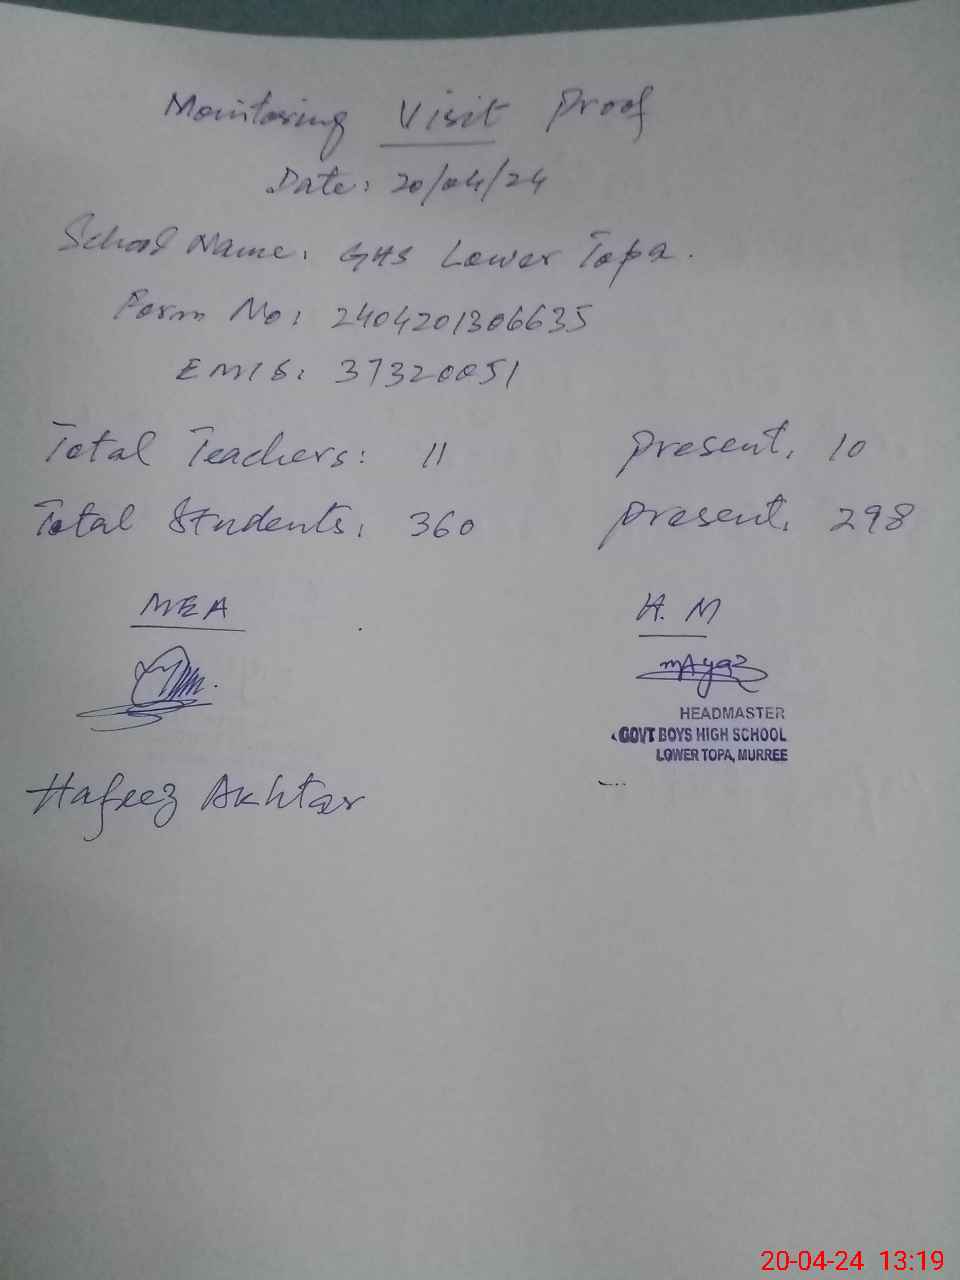 Monitoring Visit Proof
Date: 20/04/24
School Name: GHS Lower Topa.
Form No: 2404201306635
EMIS: 37320051
Total Teachers: 11 Present. 10
Total Students: 360 Present. 298
MEA H.M
mAyaz
HEADMASTER
GOVT BOYS HIGH SCHOOL
LOWER TOPA, MURREE
Hafeez Akhtar
20-04-24 13:19